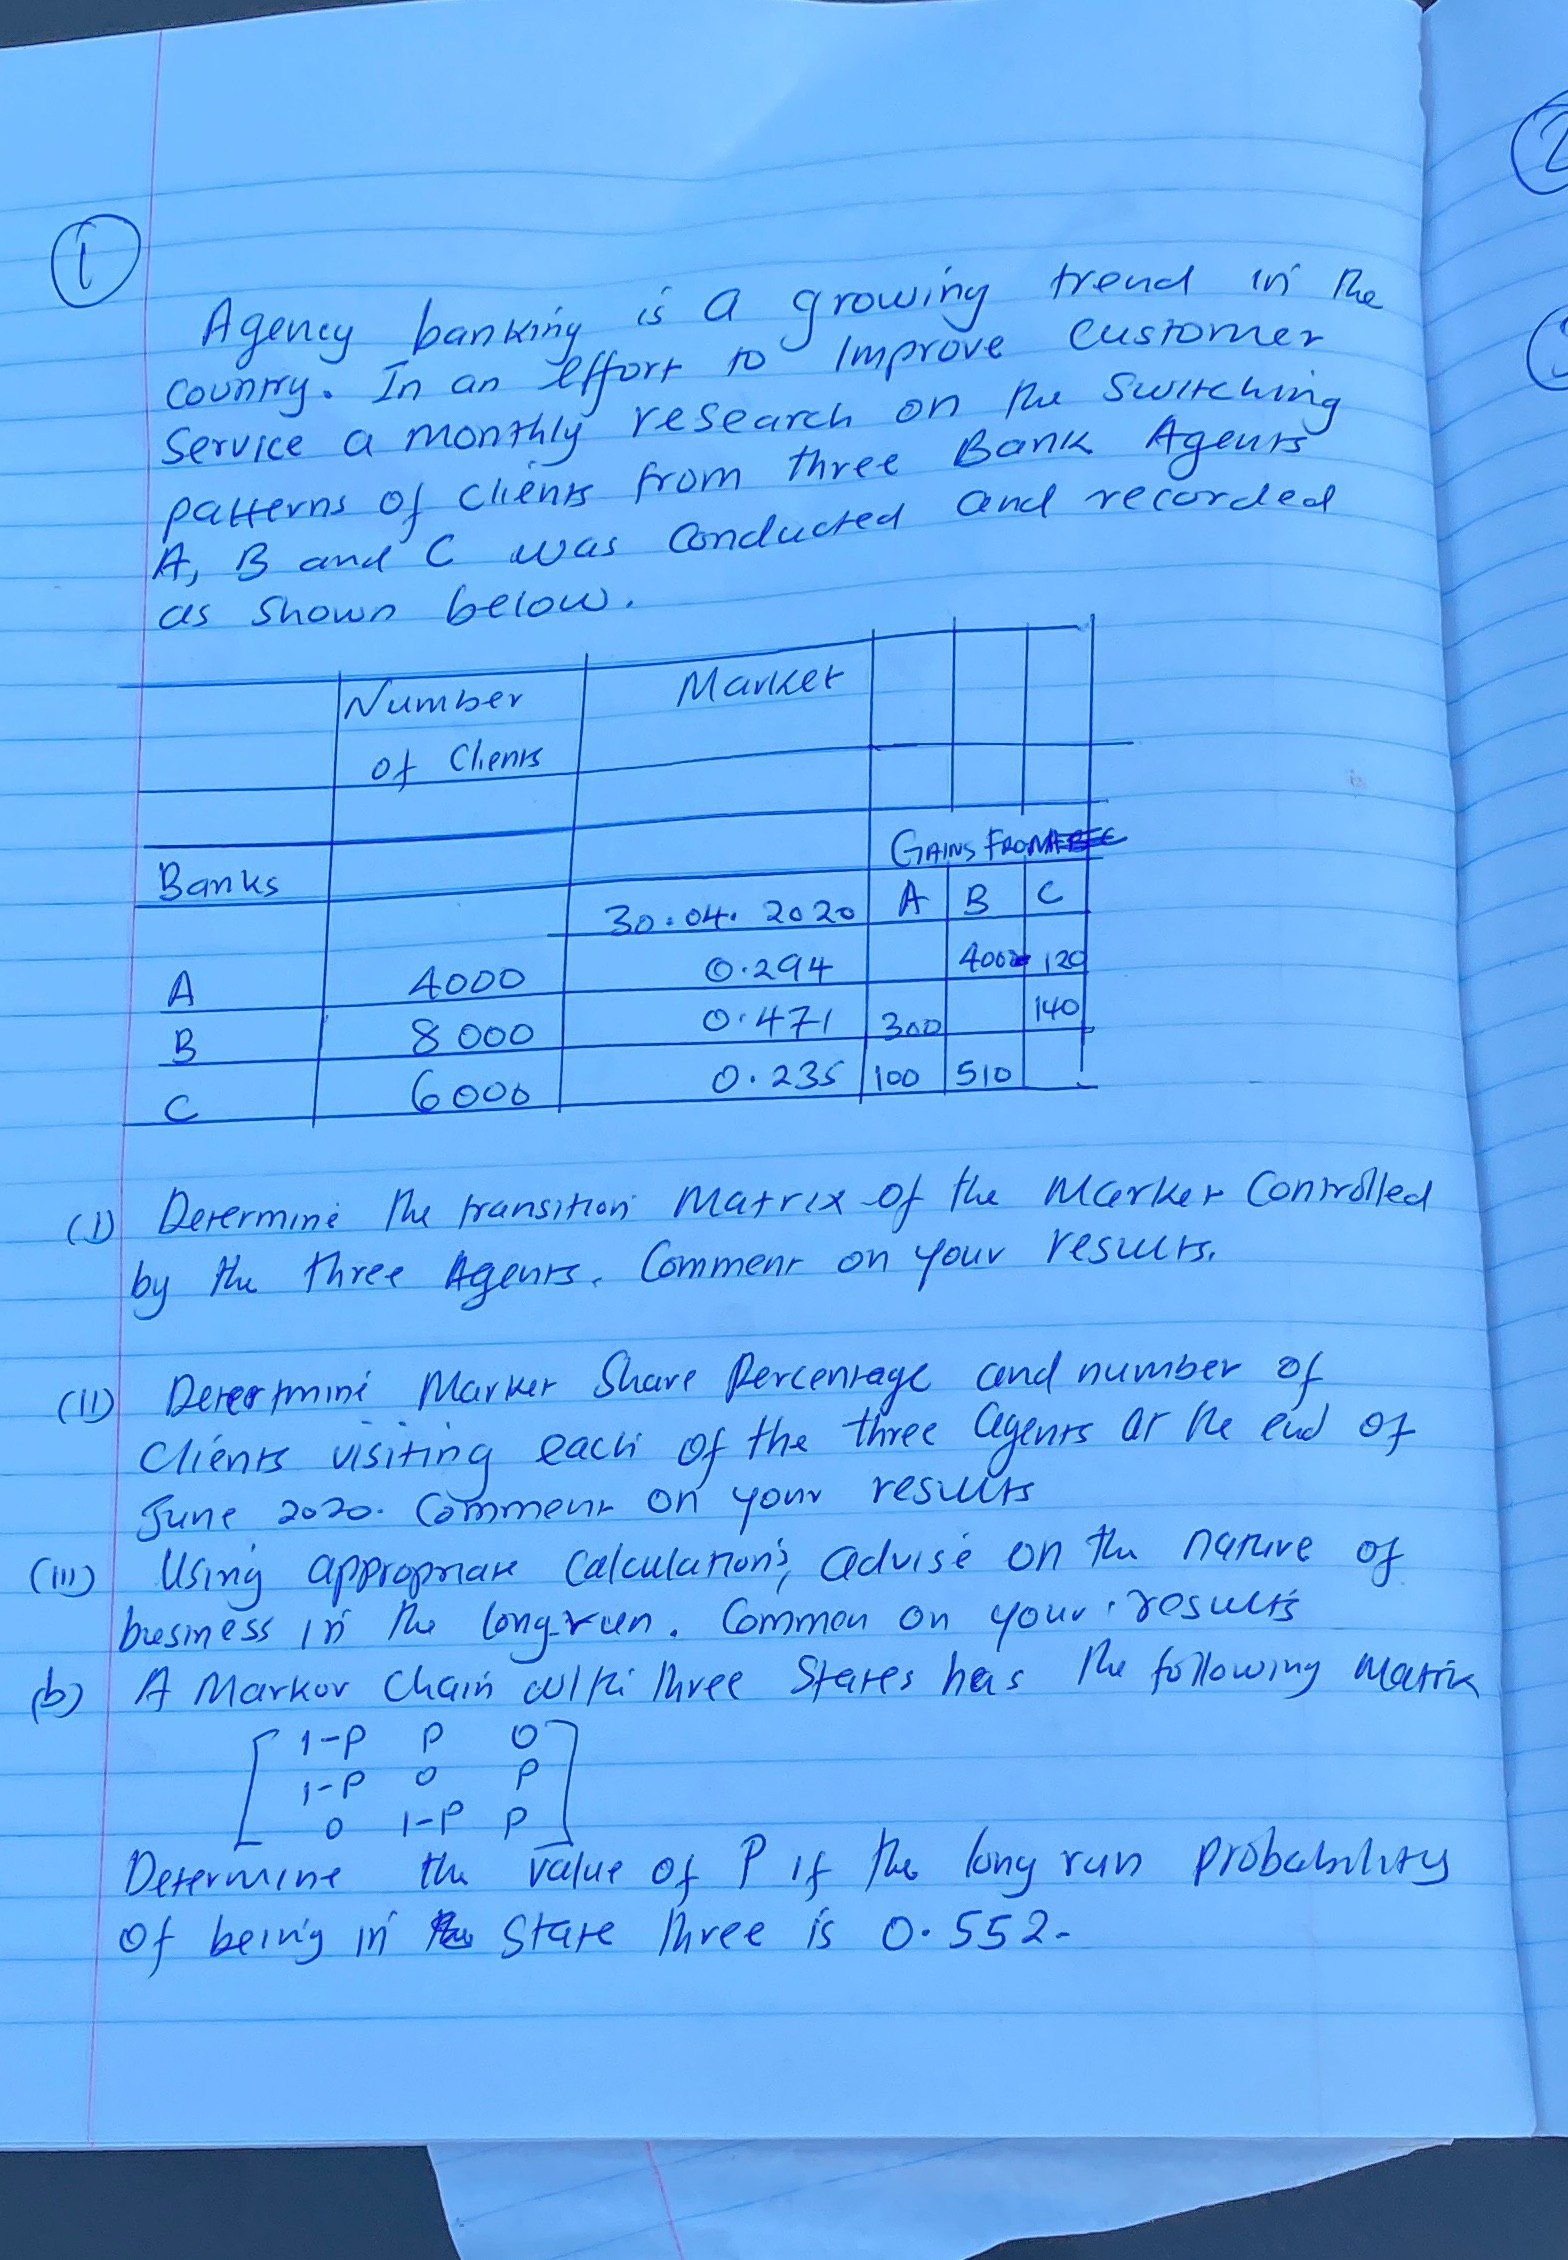 1
Agency banking is a growing trend in the
country. In an effort to Improve customer
Service a monthly research on the Switching
patterns of Clients from three Bank Agents
A, B and C was Conducted and recorded
as shown below.
Number of Clients Market
GAINS FROM
Banks 30.04.2020 A B C
A 4000 0.294 400 120
B 8000 0.471 300 140
C 6000 0.235 100 510
(I) Determine the transition Matrix of the Market Controlled
by the three Agents. Comment on your results.
(II) Determine Market Share Percentage and number of
Clients visiting each of the three Agents at the end of
June 2020. Comment on your results
(III) Using appropriate Calculations, advise on the nature of
business in the long-run. Common on your results
(b) A Markov Chain with three States has the following matrix
1-P P 0
1-P 0 P
0 1-P P
Determine the value of P if the long run probability
of being in State three is 0.552.
2